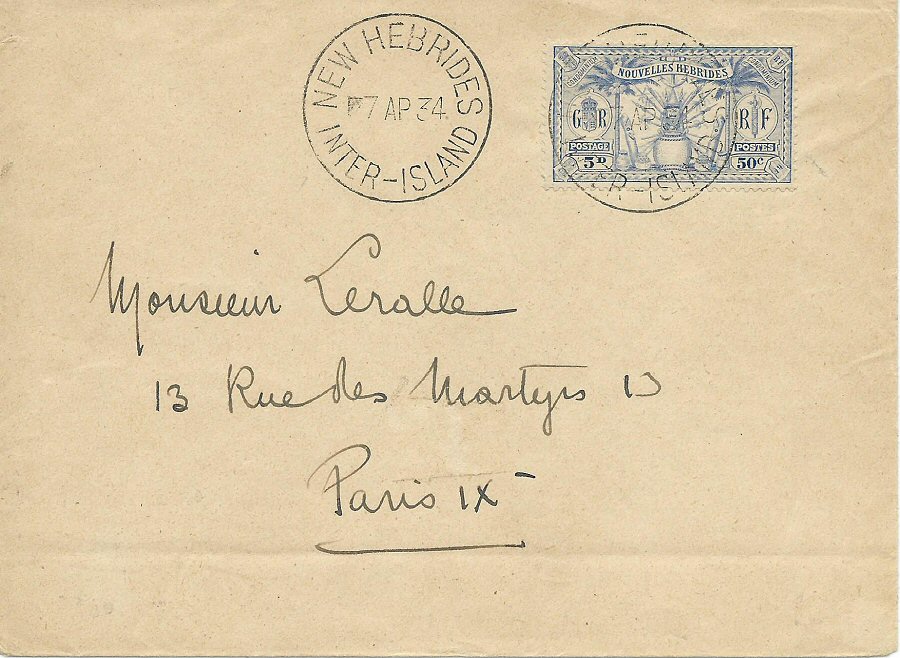 NEW HEBRIDES
7 AP 34
INTER-ISLAND
CONDOMINIUM
NOUVELLES HEBRIDES
G R
R F
POSTAGE
POSTES
5D
50c
AP 34
INTER-ISLAND
Monsieur Leralle
13 Rue des Martyrs 13
Paris IX